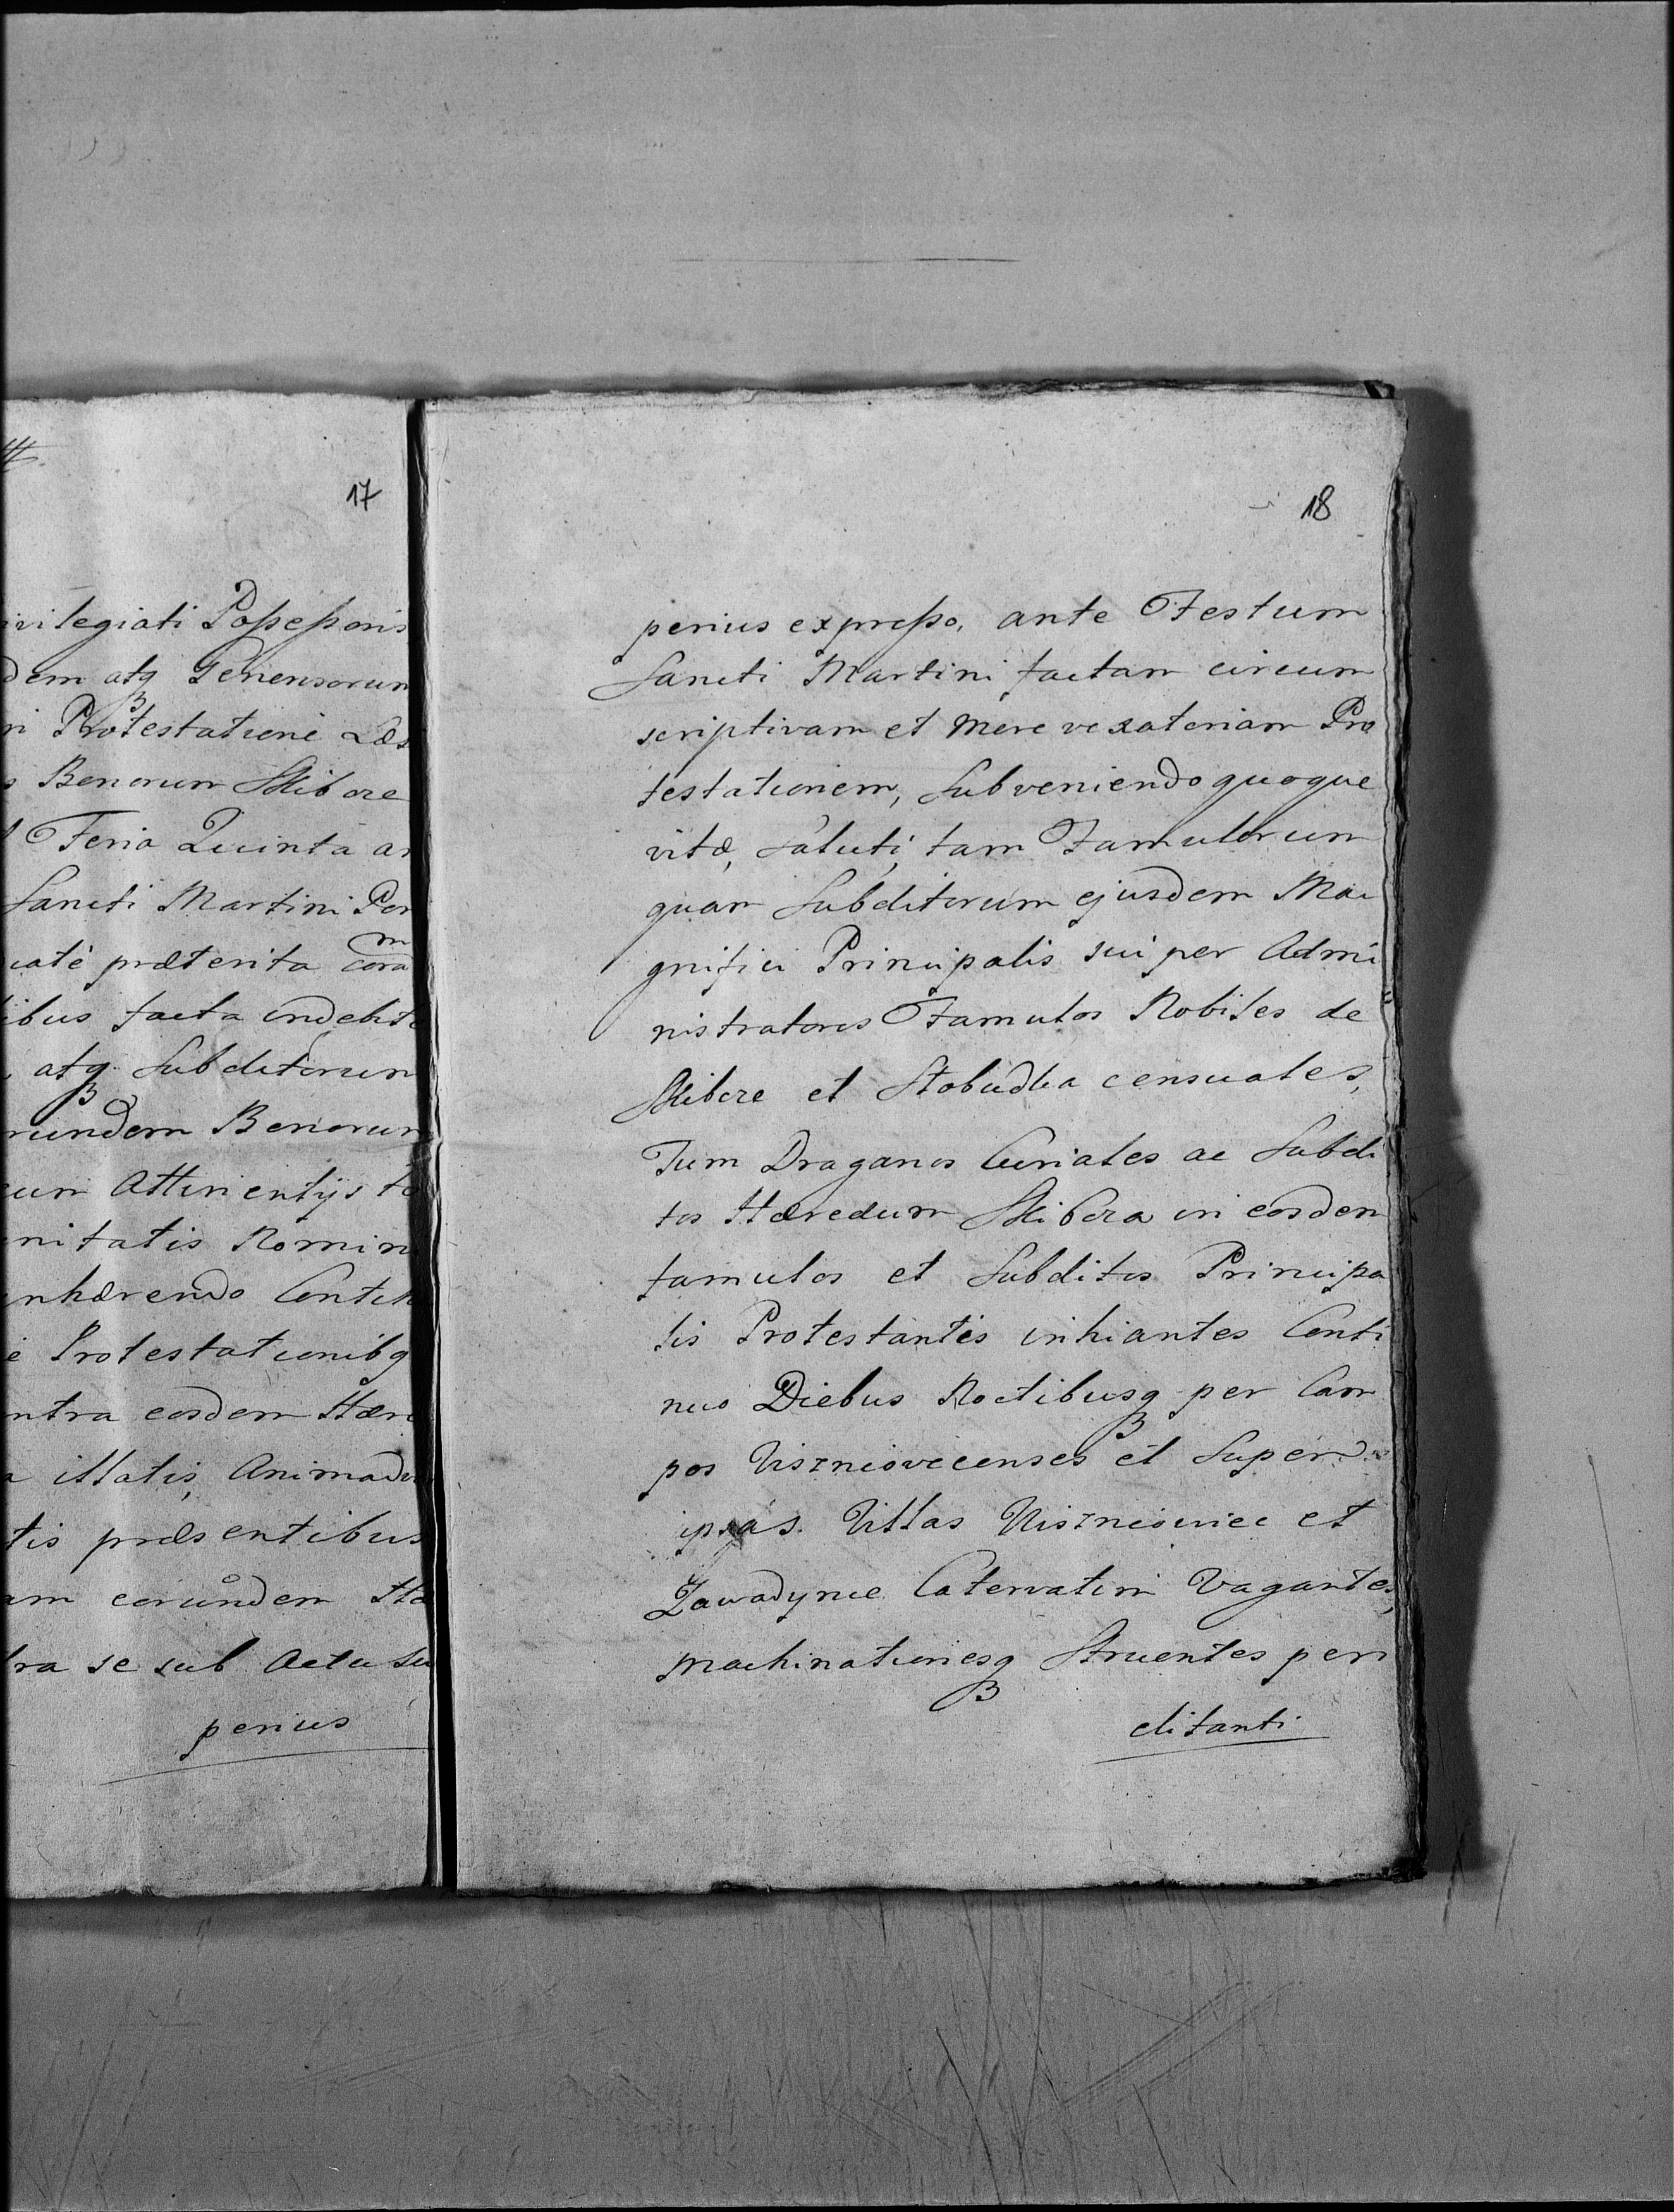 17
ivilegiati Possessoris
dem atq Generosorum
ri Protestationi Læs
s Bonorum Skibore
Feria Quinta an
Sancti Martini Pon
uatè præterita coram
ibus facta indebitè
atq Subditorum
rundem Bonorum
cum Attinentijs to
nitatis Nomin
inhærendo Contin
è Protestationibq
ntra eosdem Hære
a illatis, Animadv
tis præsentibus
am eorundem Hæ
tra se sub Actu su
perius
18
perius expresso, ante Festum
Sancti Martini factam circum
scriptivam et mere vexatoriam Pro
testationem, Subveniendo quoque
vitæ, saluti, tam Famulorum
quam Subditorum ejusdem Ma
gnifici Principalis sui per Admi
nistratores Famulos Nobiles de
Skibore et Stobudka censuales,
Tum Draganos Curiales ac Subdi
tos Hæredum Skibora in eosdem
famulos et Subditos Principa
lis Protestantis inhiantes Conti
nuo Diebus Noctibusq per Cam
pos Viszniovecenses et Super
ipsas Villas Viszniowiec et
Zawadynce Catervatim Vagantes,
machinationesq Struentes peri
clitanti